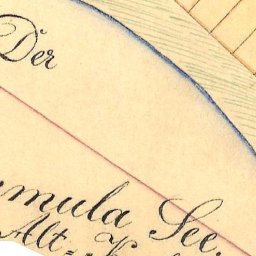 Der
mula See.
Alt=